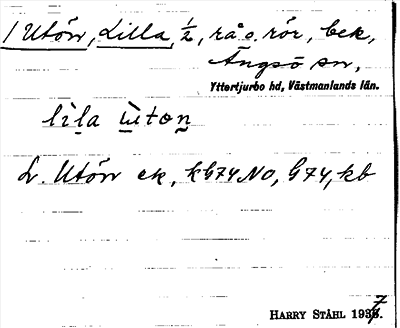 1 Utön, Lilla, ½, rå o. rör, bek,
Ängsö sn,
Yttertjurbo hd, Västmanlands län.
lìla ùtọn
L. Utön ek, kb74NO, G74, kb
HARRY STÅHL 1937.